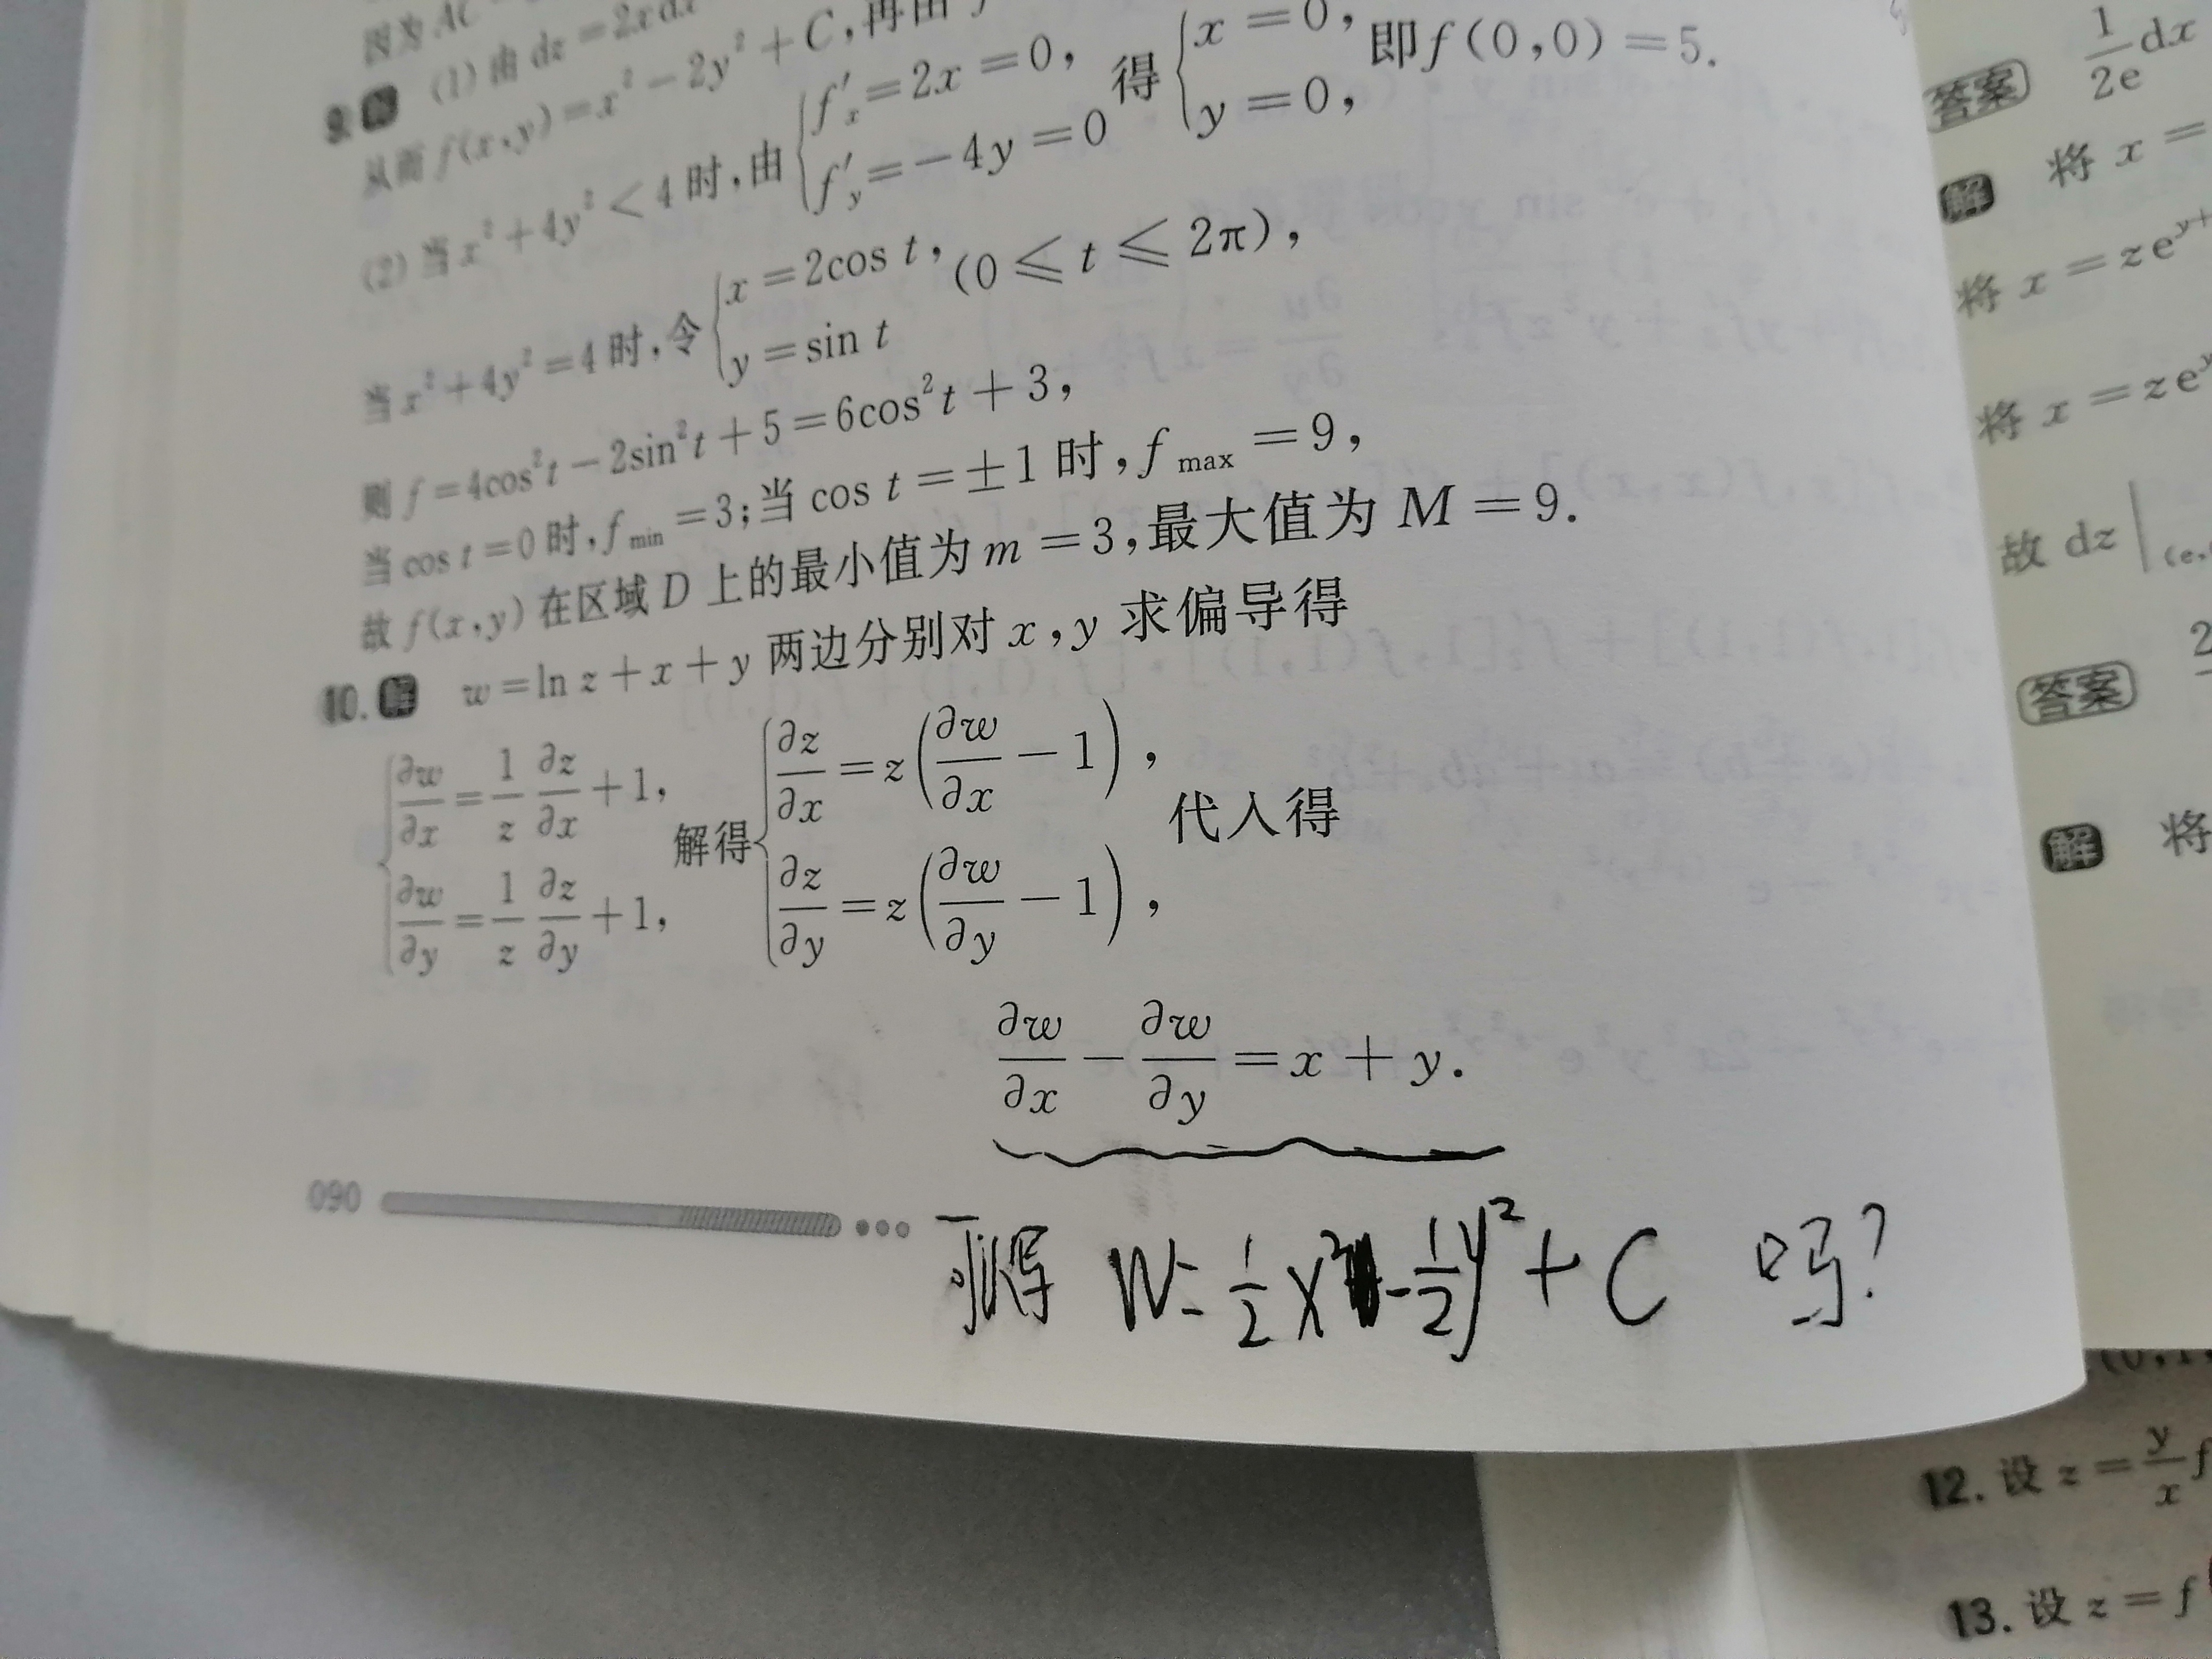 因为 AC
9. 解 (1) 由 dz = 2xdx
从而 f(x,y) = x² − 2y² + C, 再由 f
(2) 当 x² + 4y² < 4 时, 由 { f′ₓ = 2x = 0, f′ᵧ = −4y = 0 得 { x = 0, y = 0, 即 f(0,0) = 5.
当 x² + 4y² = 4 时, 令 { x = 2cos t, y = sin t (0 ⩽ t ⩽ 2π),
则 f = 4cos²t − 2sin²t + 5 = 6cos²t + 3,
当 cos t = 0 时, f min = 3; 当 cos t = ±1 时, f max = 9,
故 f(x,y) 在区域 D 上的最小值为 m = 3, 最大值为 M = 9.
10. 解 w = ln z + x + y 两边分别对 x, y 求偏导得
{ ∂w/∂x = 1/z ∂z/∂x + 1, ∂w/∂y = 1/z ∂z/∂y + 1, 解得 { ∂z/∂x = z(∂w/∂x − 1), ∂z/∂y = z(∂w/∂y − 1), 代入得
∂w/∂x − ∂w/∂y = x + y.
090
可得 W = 1/2 x² − 1/2 y² + C 吗?
答案 1/2e dx
解 将 x =
将 x = z e^y+
将 x = z e^y
故 dz | (e,
答案 2
解 将
12. 设 z = y/x f
13. 设 z = f